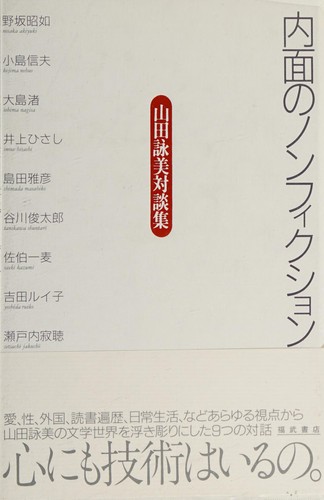 内面のノンフィクション
山田詠美対談集
野坂昭如
nosaka akiyuki
小島信夫
kojima nobuo
大島渚
oshima nagisa
井上ひさし
inoue hisashi
島田雅彦
shimada masahiko
谷川俊太郎
tanikawa shuntaro
佐伯一麦
saeki kazumi
吉田ルイ子
yoshida ruiko
瀬戸内寂聴
setouchi jakucho
愛、性、外国、読書遍歴、日常生活、などあらゆる視点から
山田詠美の文学世界を浮き彫りにした9つの対話 福武書店
心にも技術はいるの。